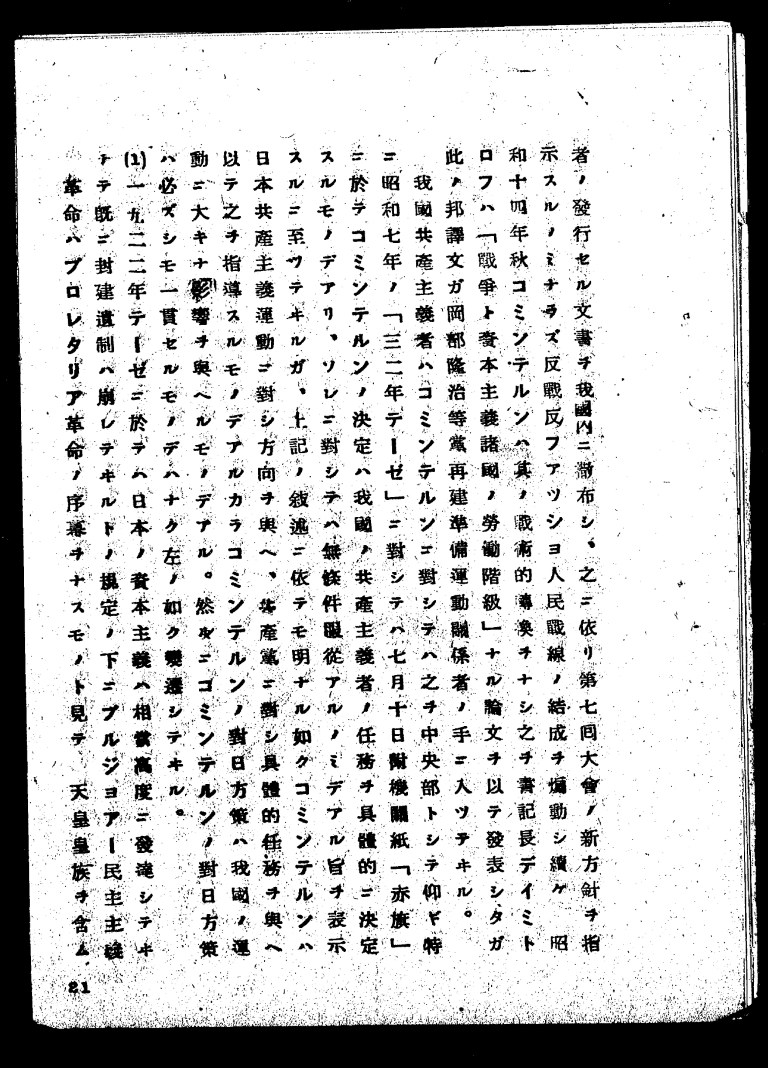 者ノ發行セル文書ヲ我國内ニ撒布シ、之ニ依リ第七回大會ノ新方針ヲ指
示スルノミナラズ反戰反フアツシヨ人民戰線ノ結成ヲ煽動シ續ケ 昭
和十四年秋コミンテルンハ其ノ戰術的轉換ヲナシ之ヲ書記長デイミト
ロフハ「戰爭ト資本主義諸國ノ勞働階級」ナル論文ヲ以テ發表シタガ
此ノ邦譯文ガ岡部隆治等黨再建準備運動關係者ノ手ニ入ツテヰル。
我國共產主義者ハコミンテルンニ對シテハ之ヲ中央部トシテ仰ギ特
ニ昭和七年ノ「三二年テーゼ」ニ對シテハ七月十日附機關紙「赤旗」
ニ於テコミンテルンノ決定ハ我國ノ共產主義者ノ任務ヲ具體的ニ決定
スルモノデアリ、ソレニ對シテハ無條件服從アルノミデアル旨ヲ表示
スルニ至ツテヰルガ、上記ノ敍述ニ依テモ明ナル如クコミンテルンハ
日本共產主義運動ニ對シ方向ヲ與ヘ、共產黨ニ對シ具體的任務ヲ與ヘ
以テ之ヲ指導スルモノデアルカラコミンテルンノ對日方策ハ我國ノ運
動ニ大キナ影響ヲ與ヘルモノデアル。然ルニコミンテルンノ對日方策
ハ必ズシモ一貫セルモノデハナク左ノ如ク變遷シテヰル。
(1)一九二二年テーゼニ於テハ日本ノ資本主義ハ相當高度ニ發達シテヰ
テ既ニ封建遺制ハ崩レテヰルトノ規定ノ下ニブルジヨアー民主主義
革命ハプロレタリア革命ノ序幕ヲナスモノト見テ 天皇皇族ヲ含ム
21